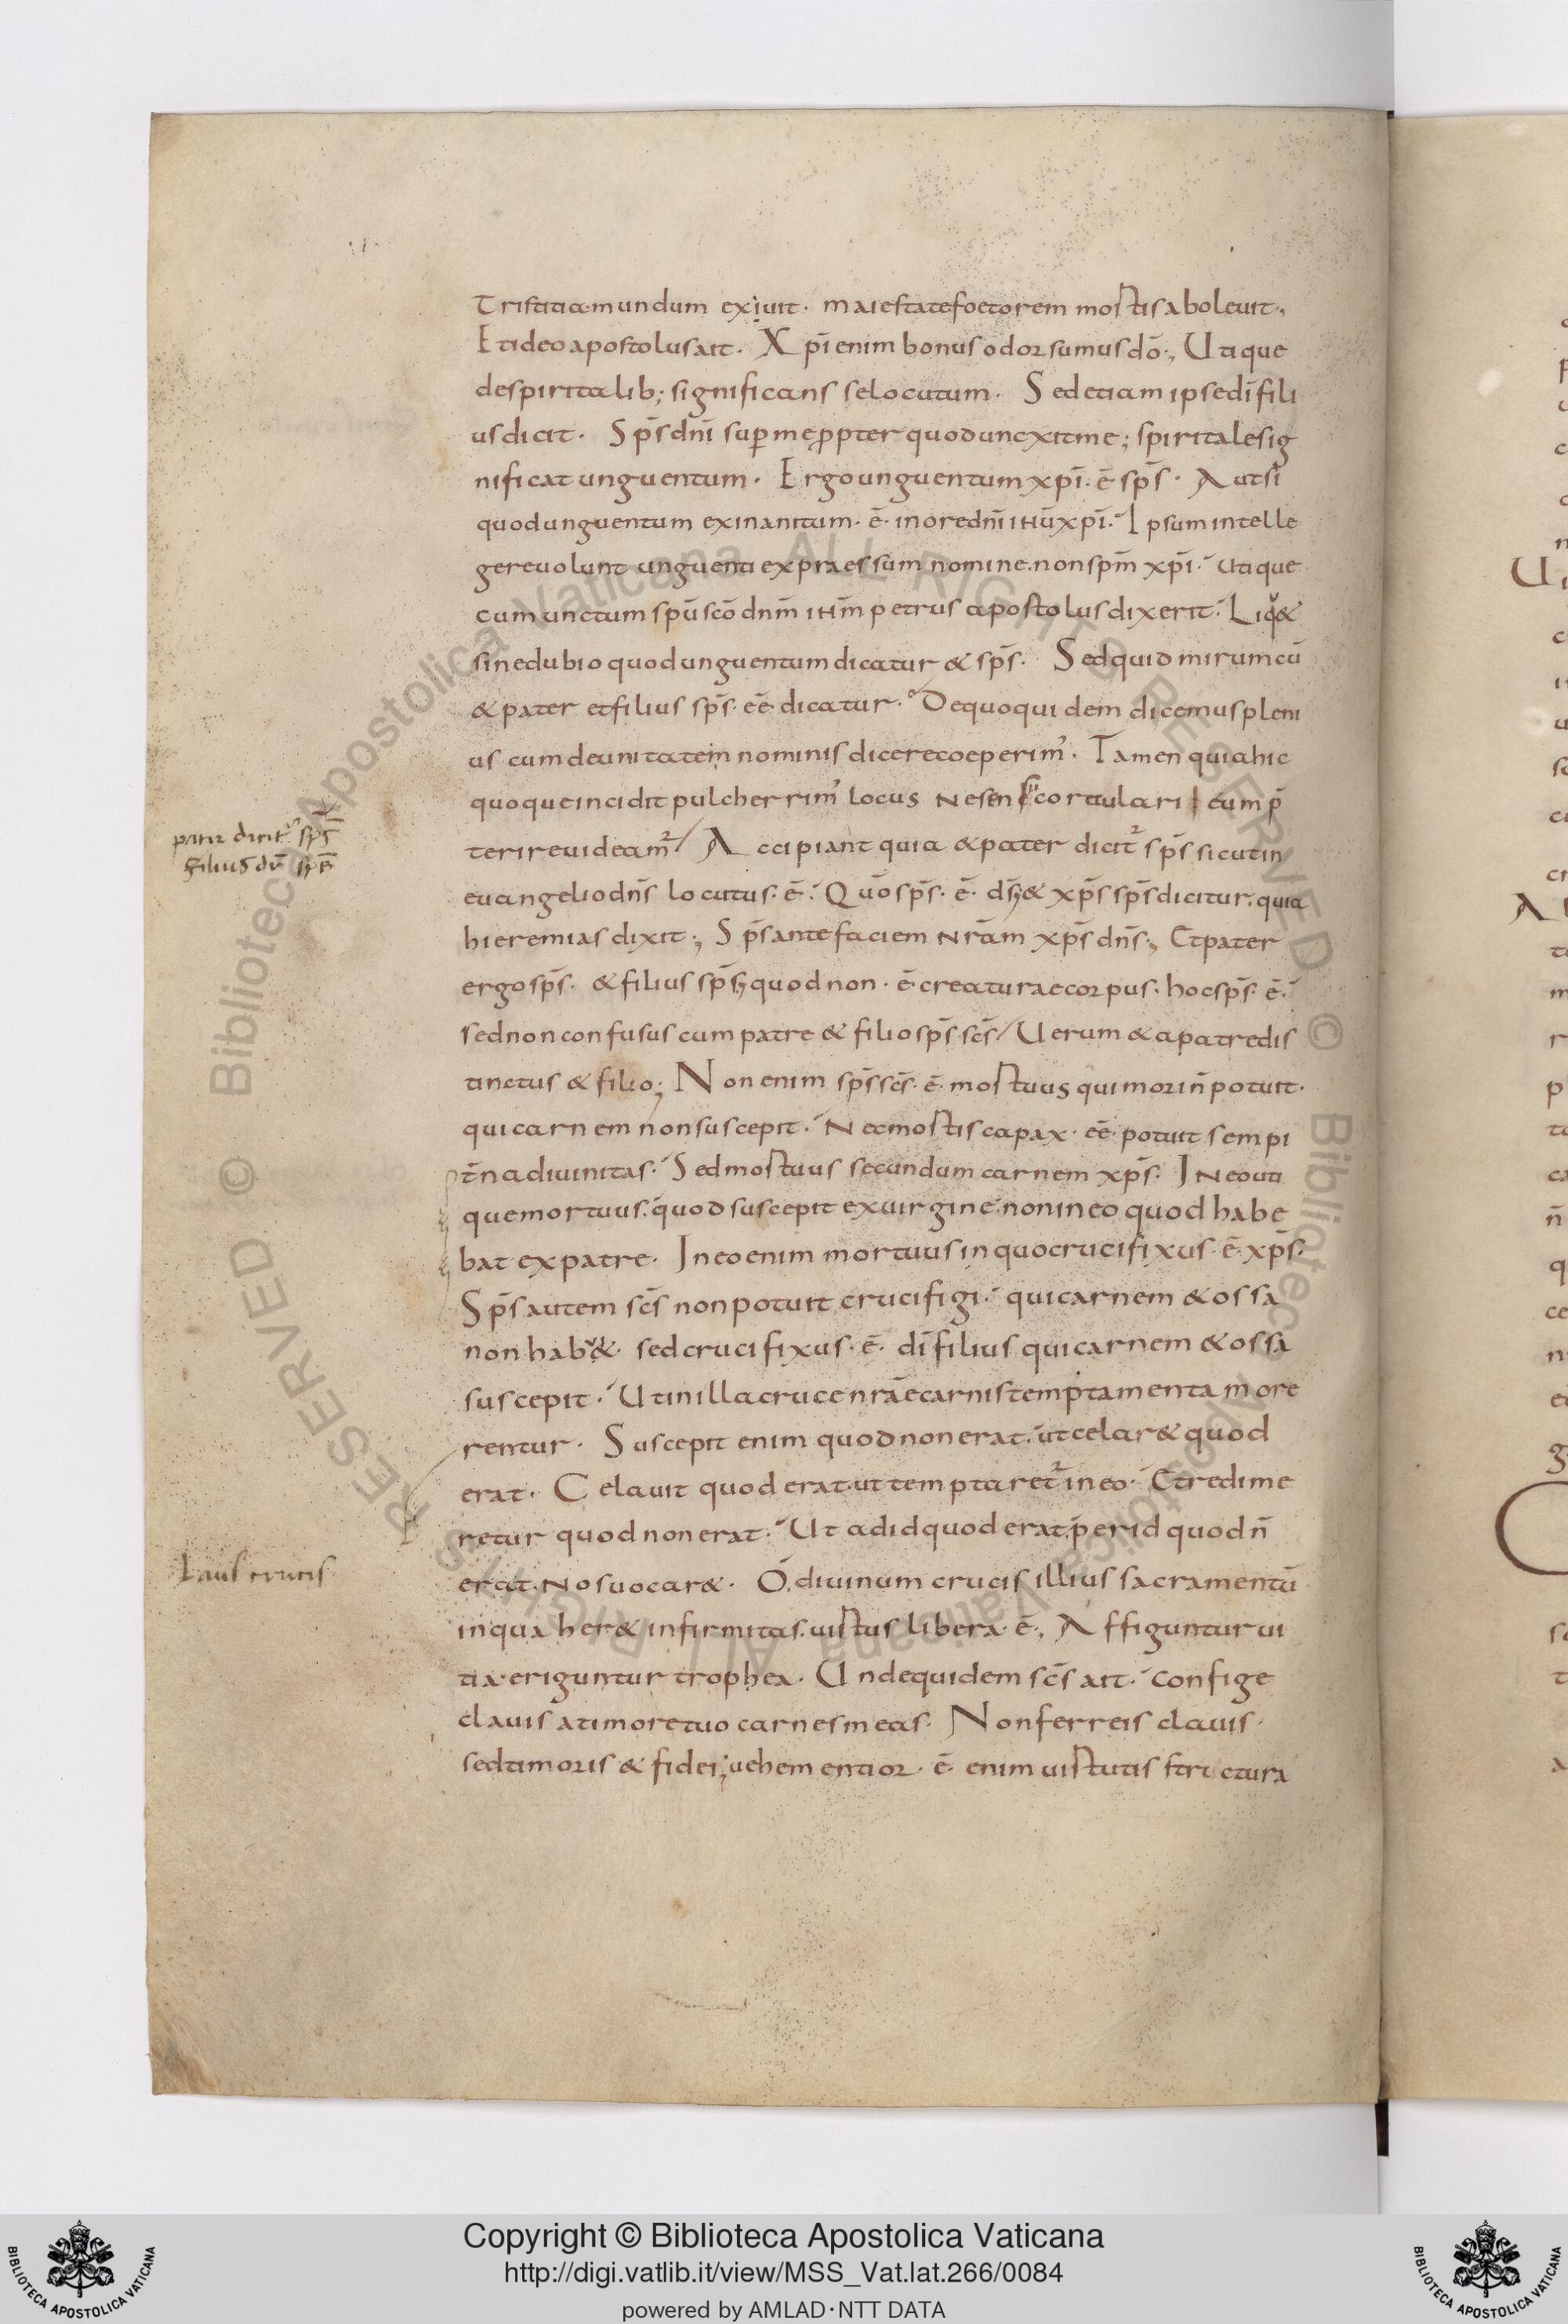 Tristitia mundum exiuit. maiestate foetorem mortis aboleuit.,
Et ideo apostolus ait. Xp̄i enim bonus odor sumus dō., Utique
de spiritalib; significans se locutum. Sed etiam ipse dī fili
us dicit. Sp̄s dn̄i sup me ppter quod unxit me; spiritale sig
nificat unguentum. Ergo unguentum xp̄i. ē sp̄s. Aut si
quod unguentum exinanitum. ē. in ore dn̄i ihū xp̄i. Ipsum intelle
gere uolunt unguenti expraessum nomine. non sp̄m xp̄i. Utique
cum unctum spū scō dn̄m ihm̄ petrus apostolus dixerit. Liq&
sine dubio quod unguentum dicatur & sp̄s. Sed quid mirum cū
& pater et filius sp̄s. eē dicatur. De quo quidem dicemus pleni
us cum de unitatem nominis dicere coeperim'. Tamen quia hic
quoque incidit pulcherrim' locus ne sen cortulari cum p̄
terire uideam' Accipiant quia & pater dicit' sp̄s sicut in
euangelio dn̄s locutus. ē. Qūo sp̄s. ē. ds̄; & xp̄s sp̄s dicitur, quia
hieremias dixit., Sp̄s ante faciem nr̄am xp̄s dn̄s., Et pater
ergo sp̄s. & filius sp̄s; quod non. ē creaturae corpus. hoc sp̄s. ē.
sed non confusus cum patre & filio sp̄s sc̄s Uerum & a patre dis
tinctus & filio; Non enim sp̄s sc̄s. ē. mortuus qui mori n̄ potuit.
qui carnem non suscepit. Nec mortis capax. eē. potuit sempi
t̄na diuinitas. Sed mortuus secundum carnem xp̄s. In eo uti
que mortuus. quod suscepit ex uirgine. non in eo quod habe
bat ex patre. In eo enim mortuus in quo crucifixus. ē. xp̄s.
Sp̄s autem sc̄s non potuit crucifigi. qui carnem & ossa
non hab&. sed crucifixus. ē. dī filius qui carnem & ossa
suscepit. Ut in illa cruce nr̄ae carnis temptamenta more
rentur. Suscepit enim quod non erat. ut celar& quod
erat. Celauit quod erat. ut temptaret' in eo. Et redime
retur quod non erat. Ut ad id quod erat. per id quod n̄
erat. nos uocar&. Ó, diuinum crucis illius sacramentū
in qua her& infirmitas. uirtus libera. ē., Affiguntur ui
tia. eriguntur trophea. Unde quidem sc̄s ait. Confige
clauis a timore tuo carnes meas. Non ferreis clauis.
sed timoris & fidei; uehementior. ē. enim uirtutis structura
pater dicit' sp̄s
filius dr̄ sp̄s
Laus crucis
Copyright © Biblioteca Apostolica Vaticana
http://digi.vatlib.it/view/MSS_Vat.lat.266/0084
powered by AMLAD·NTT DATA
BIBLIOTECA APOSTOLICA VATICANA
BIBLIOTECA APOSTOLICA VATICANA